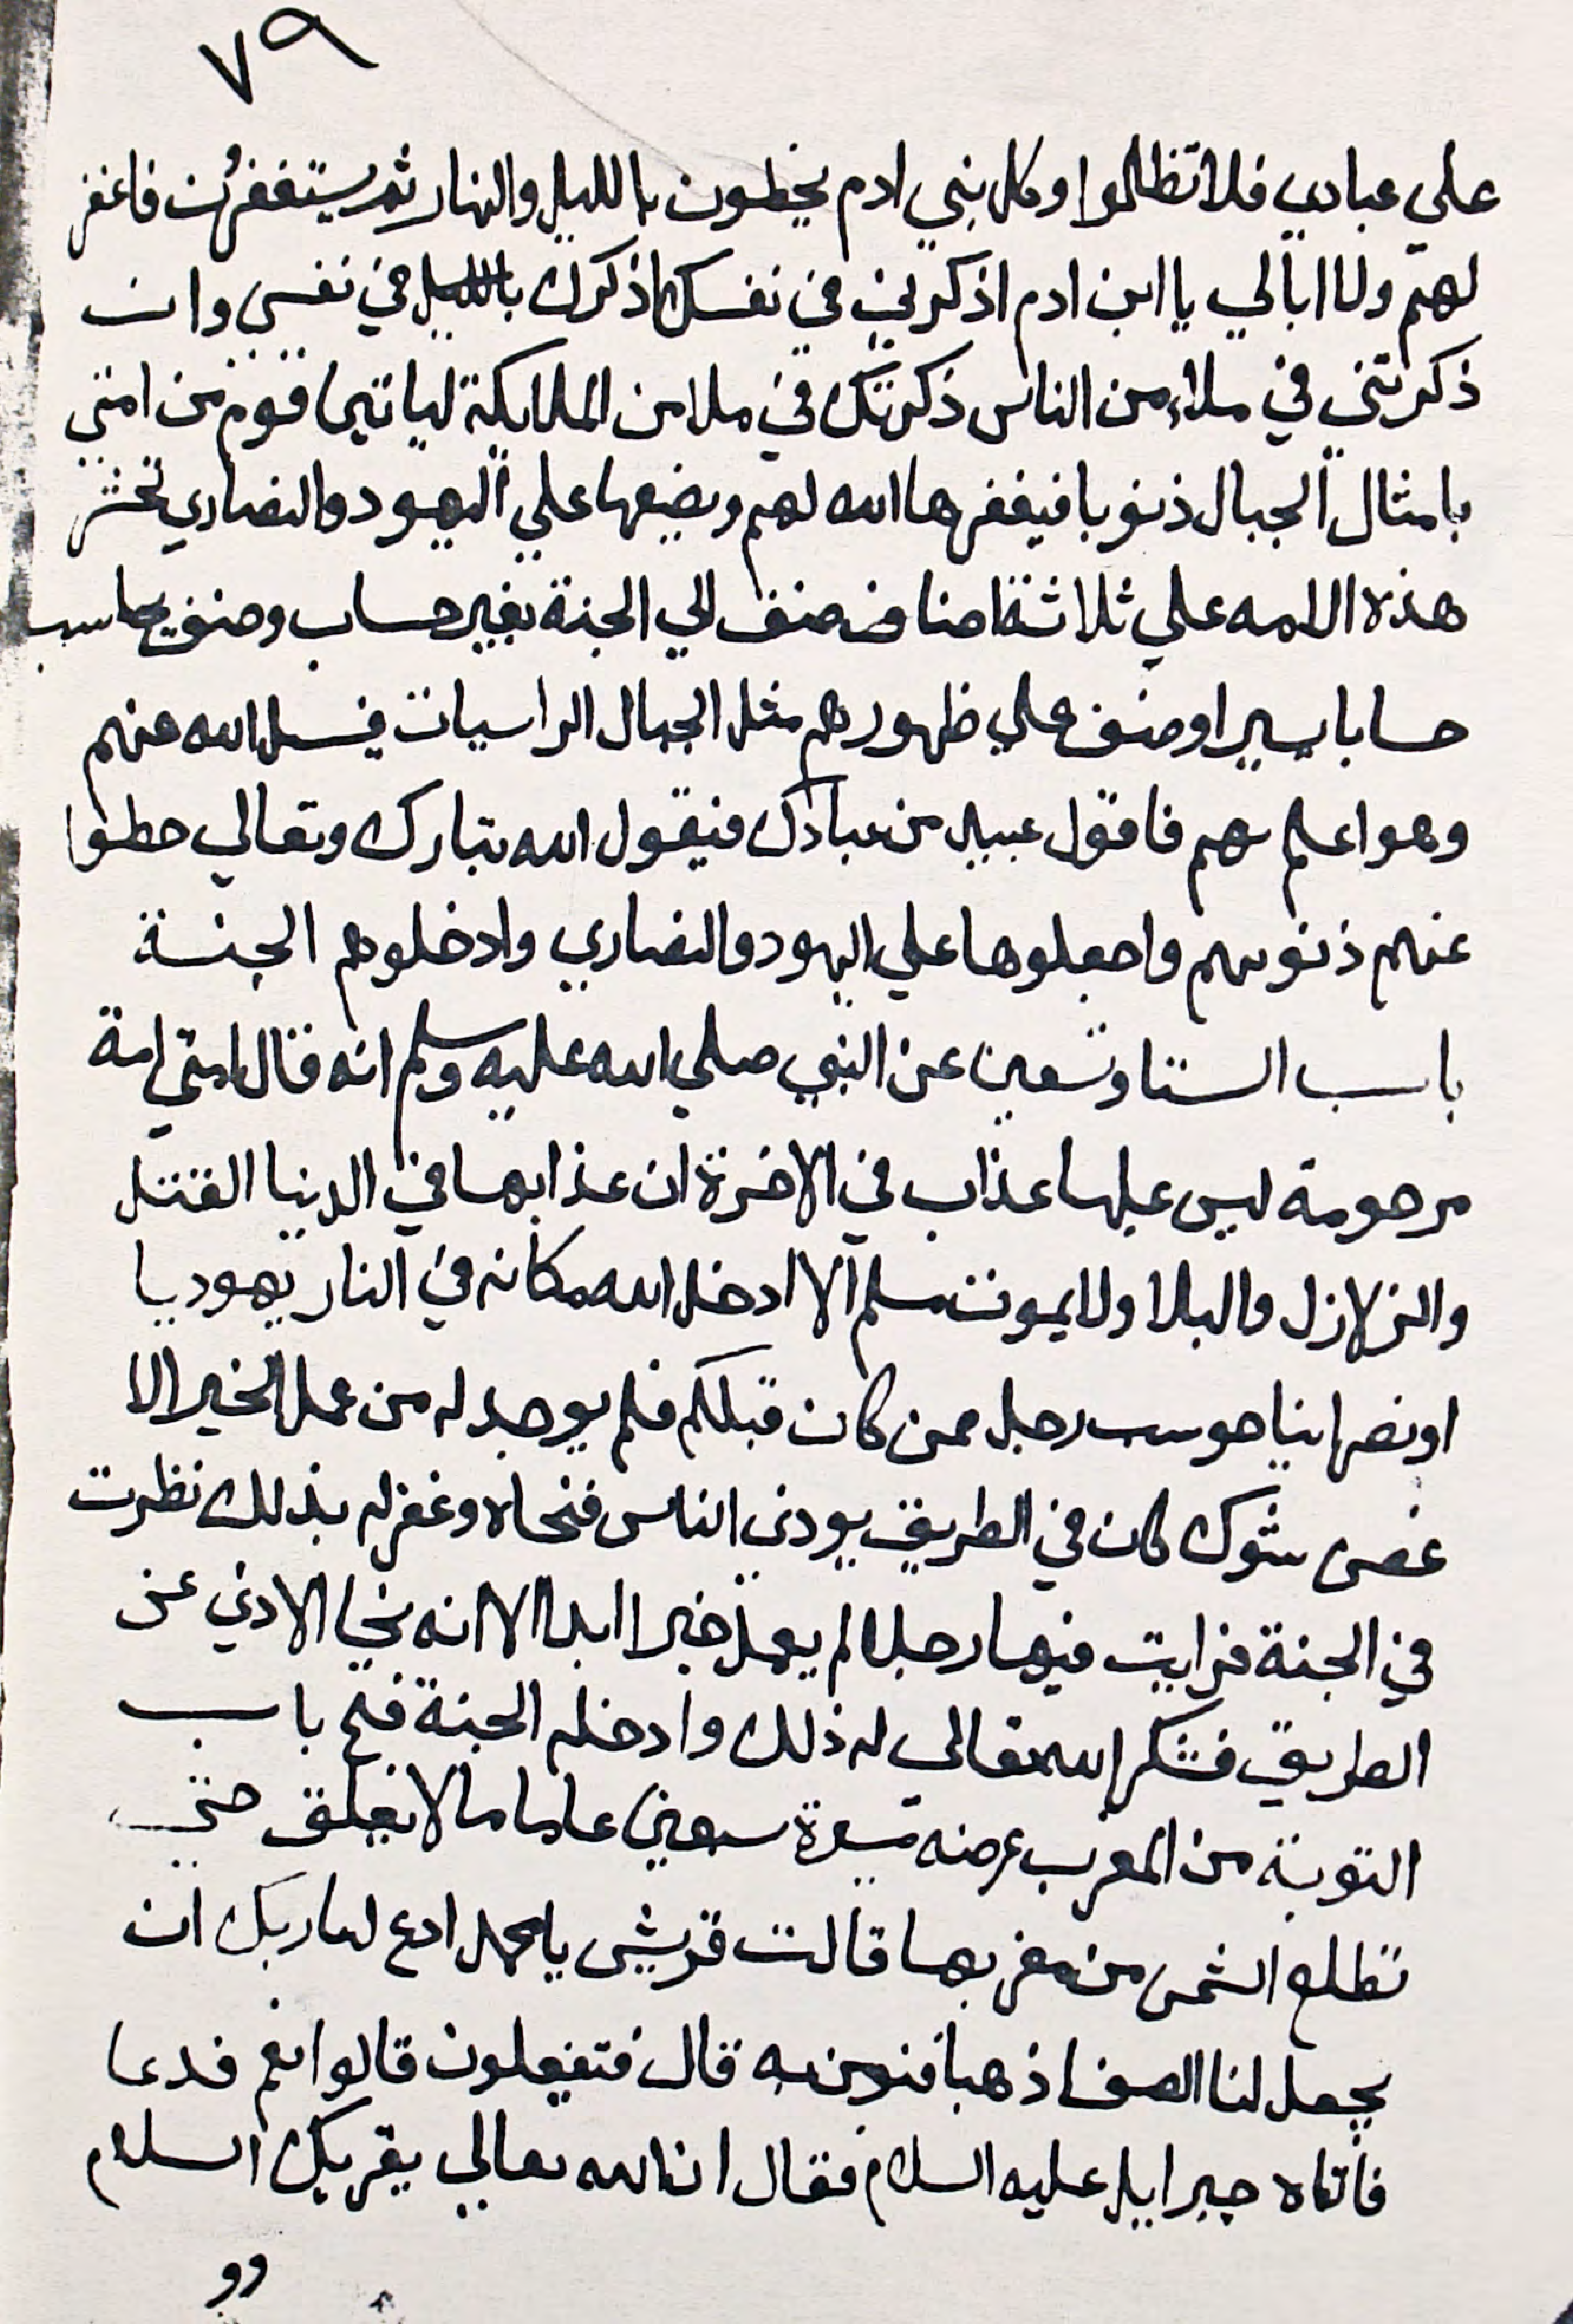 ٧٩
علي عبادي فلا تظالموا وكل بني ادم يخطون بالليل والنهار ثم يستغفرون فاغفر
لهم ولا ابالي يا ابن ادم اذكرني في نفسك اذكرك في نفسي وان
ذكرتني في ملاء من الناس ذكرتك في ملا من الملايكة لياتين قوم من امتي
بامثال الجبال ذنوبا فيغفرها الله لهم ويضعها علي اليهود والنصاري تحشر
هذه الامه علي ثلاثة اصناف صنف الي الجنة بغير حساب وصنف يحاسب
حسابا يسيرا وصنف علي ظهورهم مثل الجبال الراسيات فيسل الله عنهم
وهو اعلم بهم فاقول عبيد من عبادك فيقول الله تبارك وتعالي حطوا
عنهم ذنوبهم واجعلوها علي اليهود والنصاري وادخلوهم الجنة
باب الستا وتسعين عن النبي صلي الله عليه وسلم انه قال امتي امة
مرحومة ليس عليها عذاب في الاخرة ان عذابها في الدنيا القتل
والزلازل والبلا ولا يموت مسلم الا ادخل الله مكانه في النار يهوديا
او نصرانيا حوسب رجل ممن كان قبلكم فلم يوجد له من عمل الخير الا
غصن شوك كان في الطريق يودي الناس فنحاه وغفر له بذلك نظرت
في الجنة فرايت فيها رجلا لم يعمل خيرا ابدا الا انه نحا الاذي عن
الطريق فشكر الله تعالي له ذلك وادخله الجنة فتح باب
التوبة من المغرب عرضه مسيرة سبعين عاما لا يغلق حتي
تطلع الشمس من مغربها قالت قريش يا محمد ادع لنا ربك ان
يجعل لنا الصفا ذهبا فنومن به قال فتفعلون قالوا نعم فدعا
فاتاه جبرايل عليه السلام فقال ان الله تعالي يقريك السلام